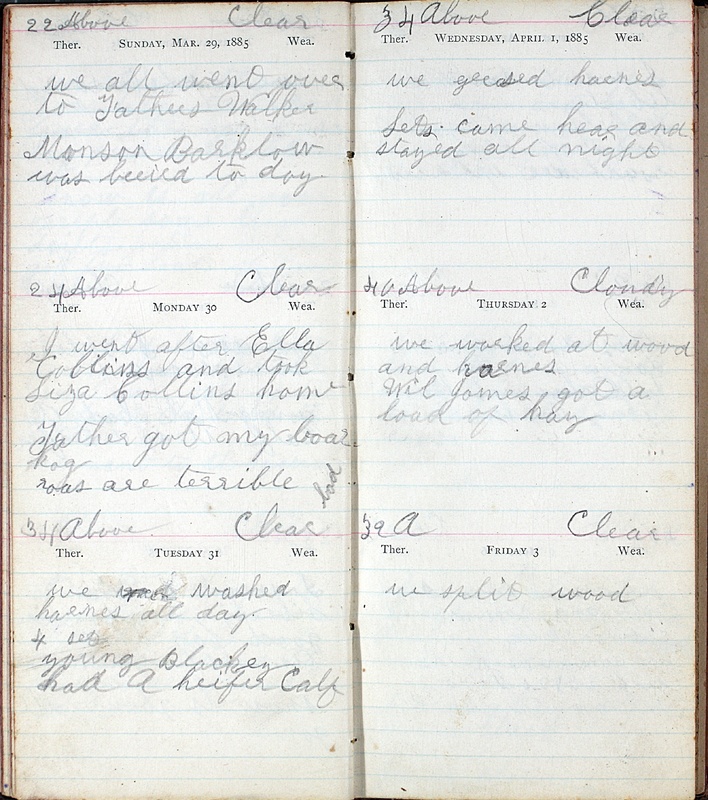 22 Above Clear
Ther. SUNDAY, MAR. 29, 1885 Wea.
we all went over
to Fathers Walker
Monson Barklow
was beried to day
24 Above Clear
Ther. MONDAY 30 Wea.
I went after Ella
Collins and took
Liza Collins home
Father got my boar
hog
roads are terrible bad
34 Above Clear
Ther. TUESDAY 31 Wea.
we washed
harnes all day
4 set
young Blackey
had A heifer Calf
34 Above Clear
Ther. WEDNESDAY, APRIL 1, 1885 Wea.
we greased harnes
came hear and
stayed all night
40 Above Cloudy
Ther. THURSDAY 2 Wea.
we worked at wood
and harnes
Wil Jomes got a
load of hay
39 A Clear
Ther. FRIDAY 3 Wea.
we split wood